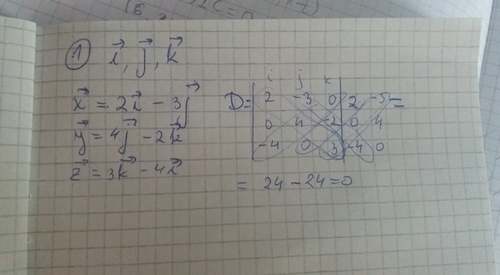 ① i⃗, j⃗, k⃗
x⃗ = 2i⃗ - 3j⃗
y⃗ = 4j⃗ - 2k⃗
z⃗ = 3k⃗ - 4i⃗
i j k
D = | 2 -3 0 | 2 -3 =
0 4 -2 | 0 4
-4 0 3 | -4 0
= 24 - 24 = 0